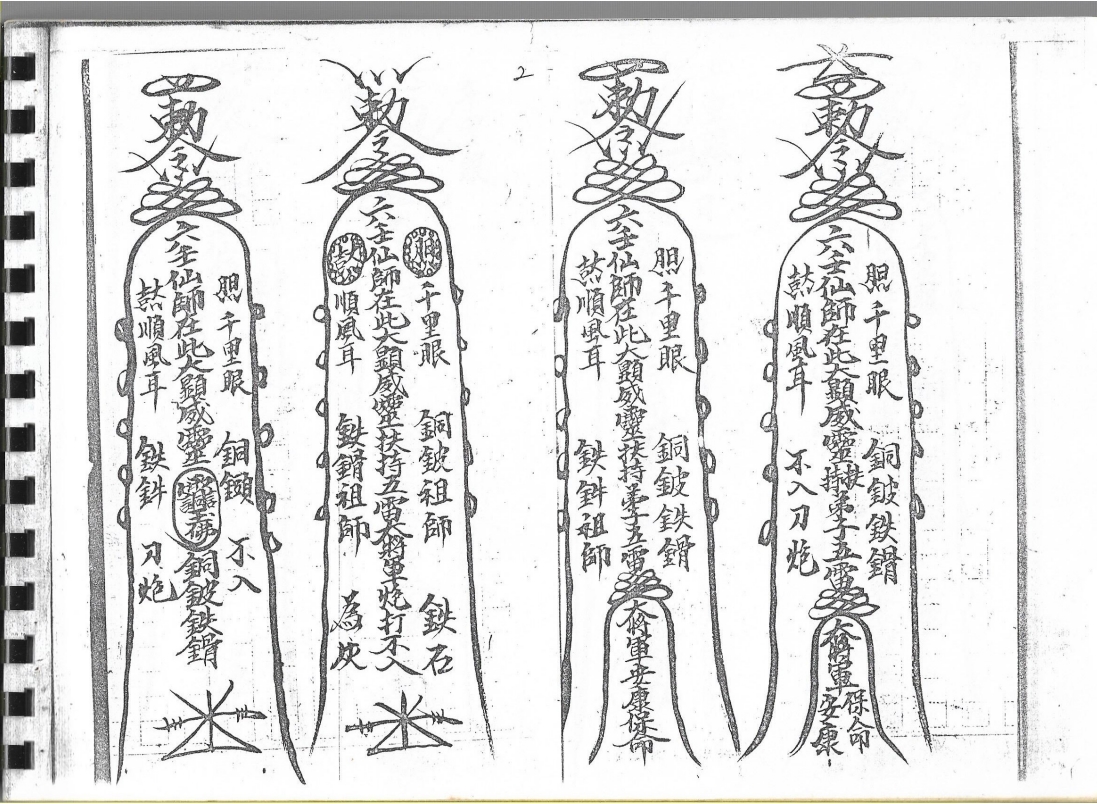 2
勅令
六壬仙師在此大顯威靈扶持弟子五雷
大將軍
保命
安康
胆千里眼
銅皷鉄䤼
順風耳
不入刀炮
勅令
六壬仙師在此大顯威靈扶持弟子五雷
大將軍安康保命
胆千里眼
銅皷鉄䤼
順風耳
祖師
勅令
六壬仙師在此大顯威靈扶持五雷大將軍炮打不入
千里眼
銅皷祖師
鉄石
順風耳
祖師
為
勅令
六壬仙師在此大顯威靈
銅皷鉄䤼
胆千里眼
銅
不入
順風耳
鉄
刀炮